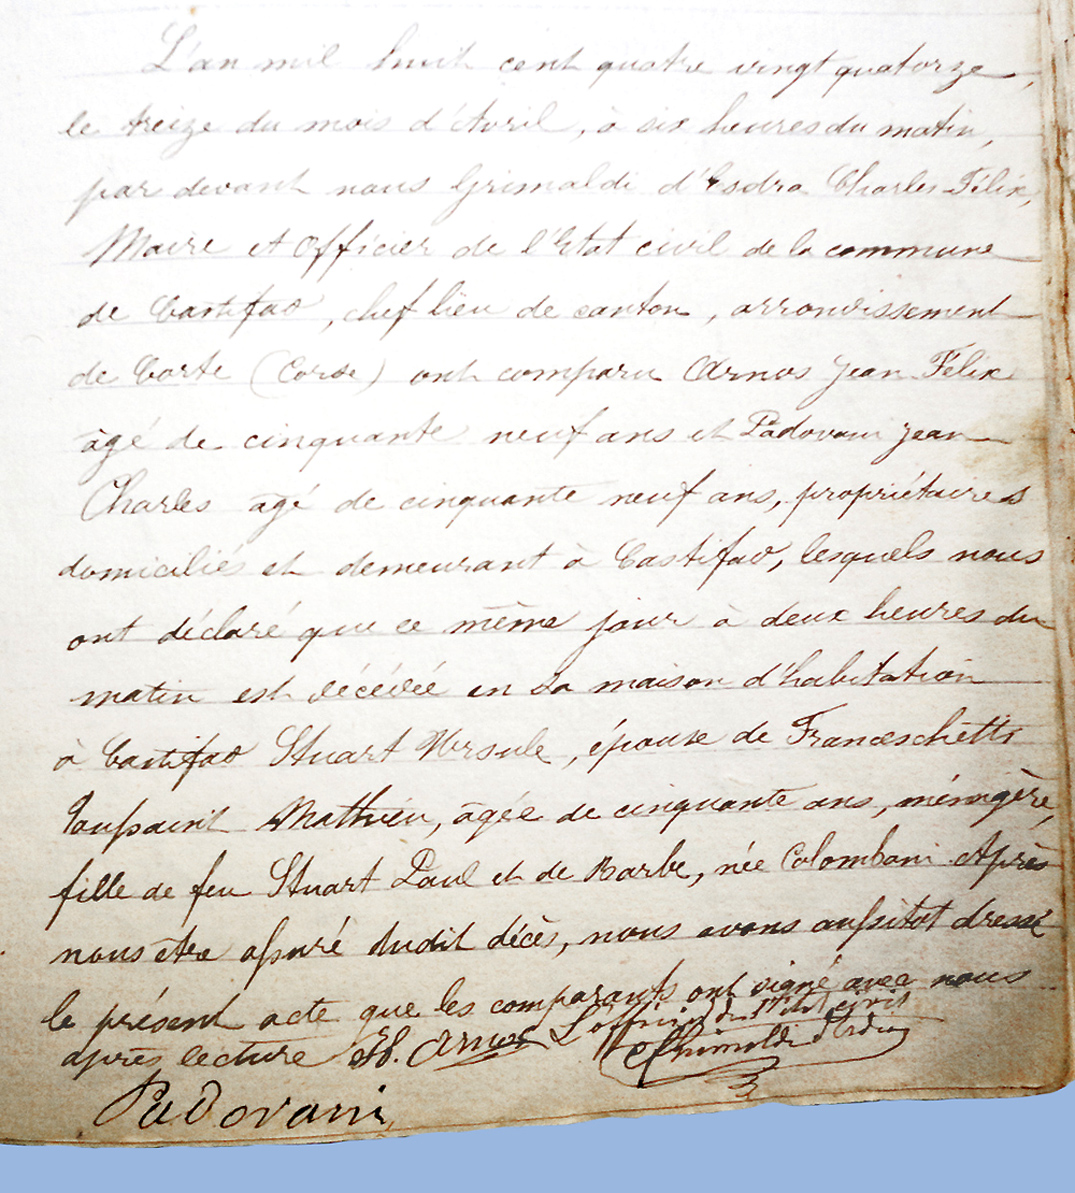 L'an mil huit cent quatre vingt quatorze,
le treize du mois d'Avril, à six heures du matin,
par devant nous Grimaldi d'Esdra Charles Félix,
Maire et Officier de l'Etat civil de la commune
de Castifao, chef lieu de canton, arrondissement
de Corte (Corse) ont comparu Arnos Jean Félix
âgé de cinquante neuf ans et Padovani Jean
Charles âgé de cinquante neuf ans, propriétaires
domiciliés et demeurant à Castifao, lesquels nous
ont déclaré que ce même jour à deux heures du
matin est décédée en sa maison d'habitation
à Castifao Stuart Ursule, épouse de Franceschetti
Toussaint Mathieu, âgée de cinquante ans, ménagère,
fille de feu Stuart Paul et de Barbe, née Colombani. Après
nous être assuré dudit décès, nous avons aussitot dressé
le présent acte que les comparants ont signé avec nous
après lecture Arnos L'officier de l'Etat civil
Grimaldi d'Esdra
Padovani